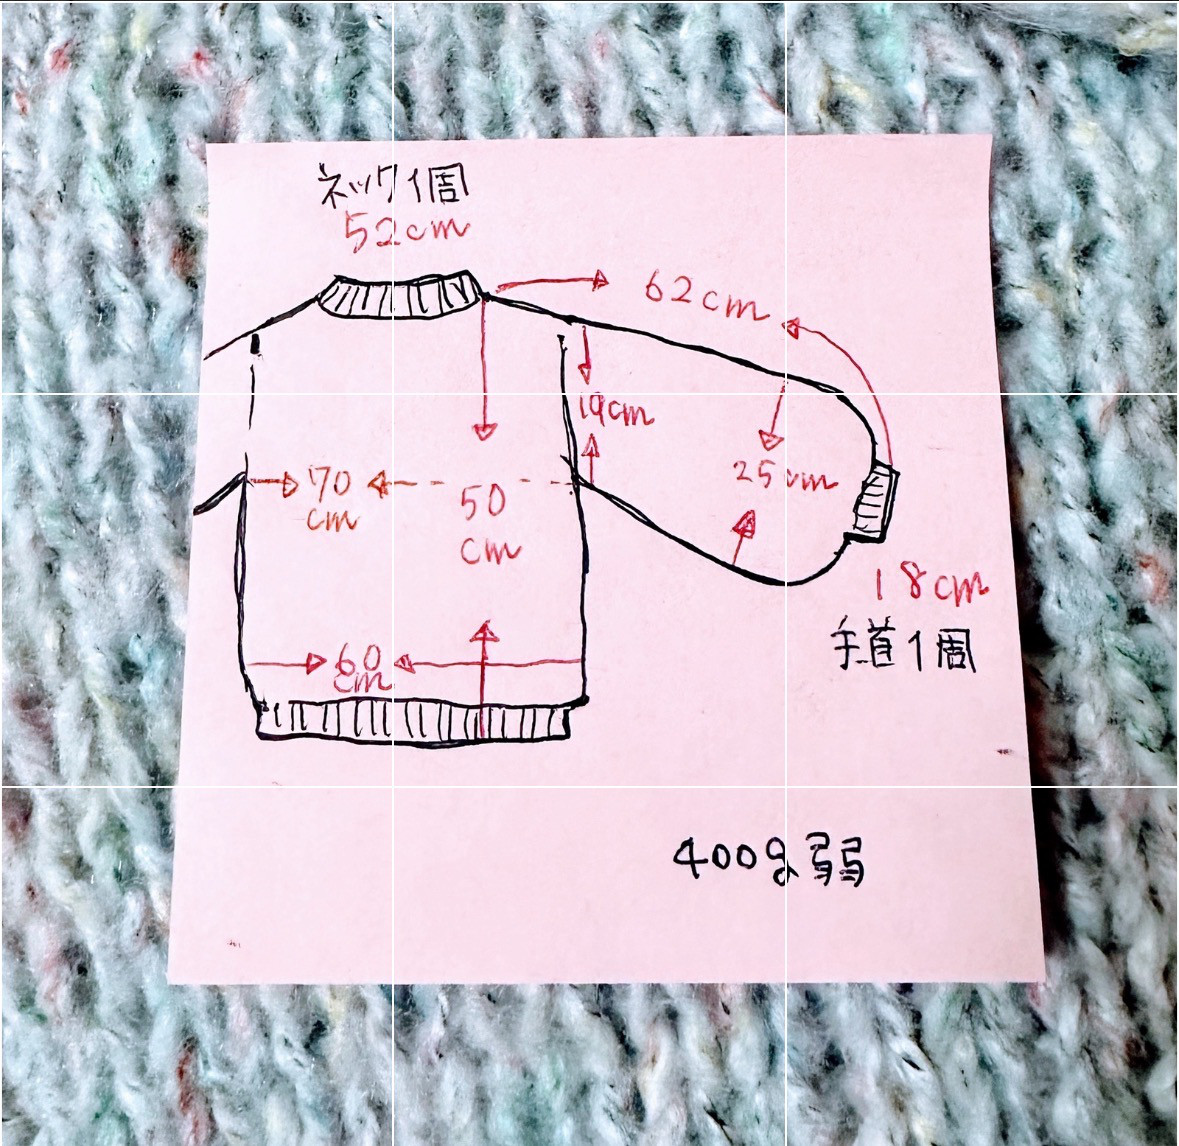 ネック1周
52cm
62cm
19cm
25cm
70
cm
50
cm
18cm
手首1周
60
cm
400g弱